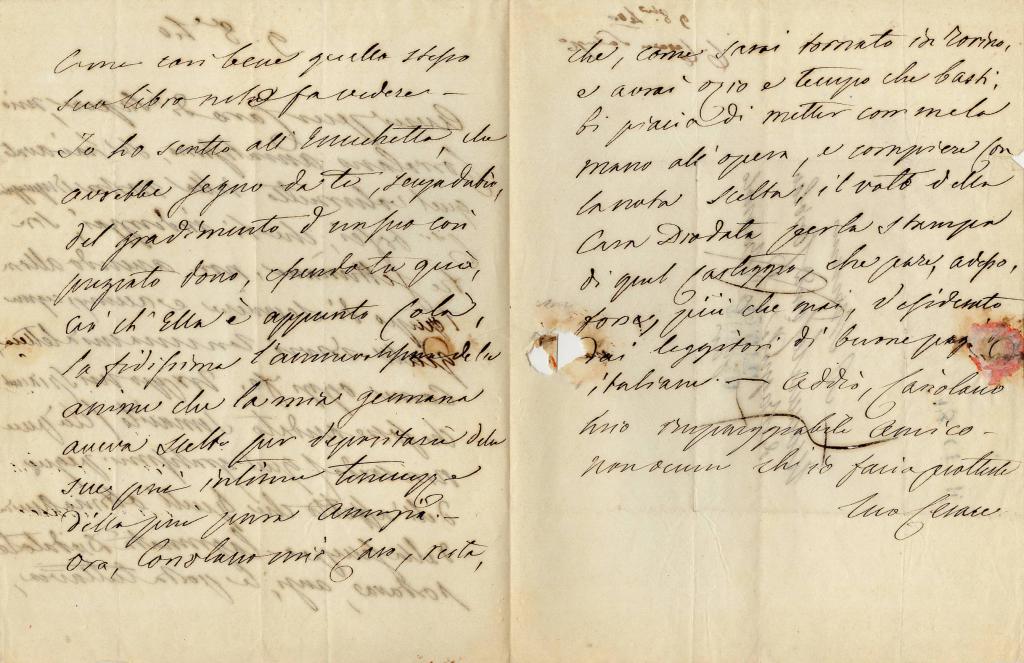 Come così bene quello stesso
suo libro nel fa vedere —
Io ho scritto all' Enrichetta, che
avrebbe segno da te, senza dubio,
del gradimento d'un suo così
pregiato dono,
ciò ch' Ella è appunto colà,
la fidissima de la
anime che la mia germana
aveva scelto per depositaria delle
sue più intime tenerezze
della più pura amicizia. —
Ora, Coriolano mio Caro, resta,
che, come sarai tornato di Torino,
e avrai ozio e tempo che basti,
ti piaccia di metter con me la
mano all' opera, e compiere con
la nota scelta, il voto della
Cara Diodata per la stampa
di quel carteggio, che pare, adesso,
forse, più che mai, desiderato
dai leggitori di buone pag
italiane. — Addio, Coriolano
mio impareggiabile amico —
non occorre ch' io faccia proteste
tuo Cesare